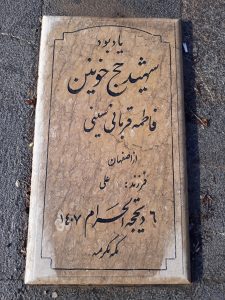 یادبود
شهید حج خونین
فاطمه قربانی سینی
از اصفهان
فرزند: علی
۶ ذیحجة الحرام ۱۴۰۷
مکه مکرمه